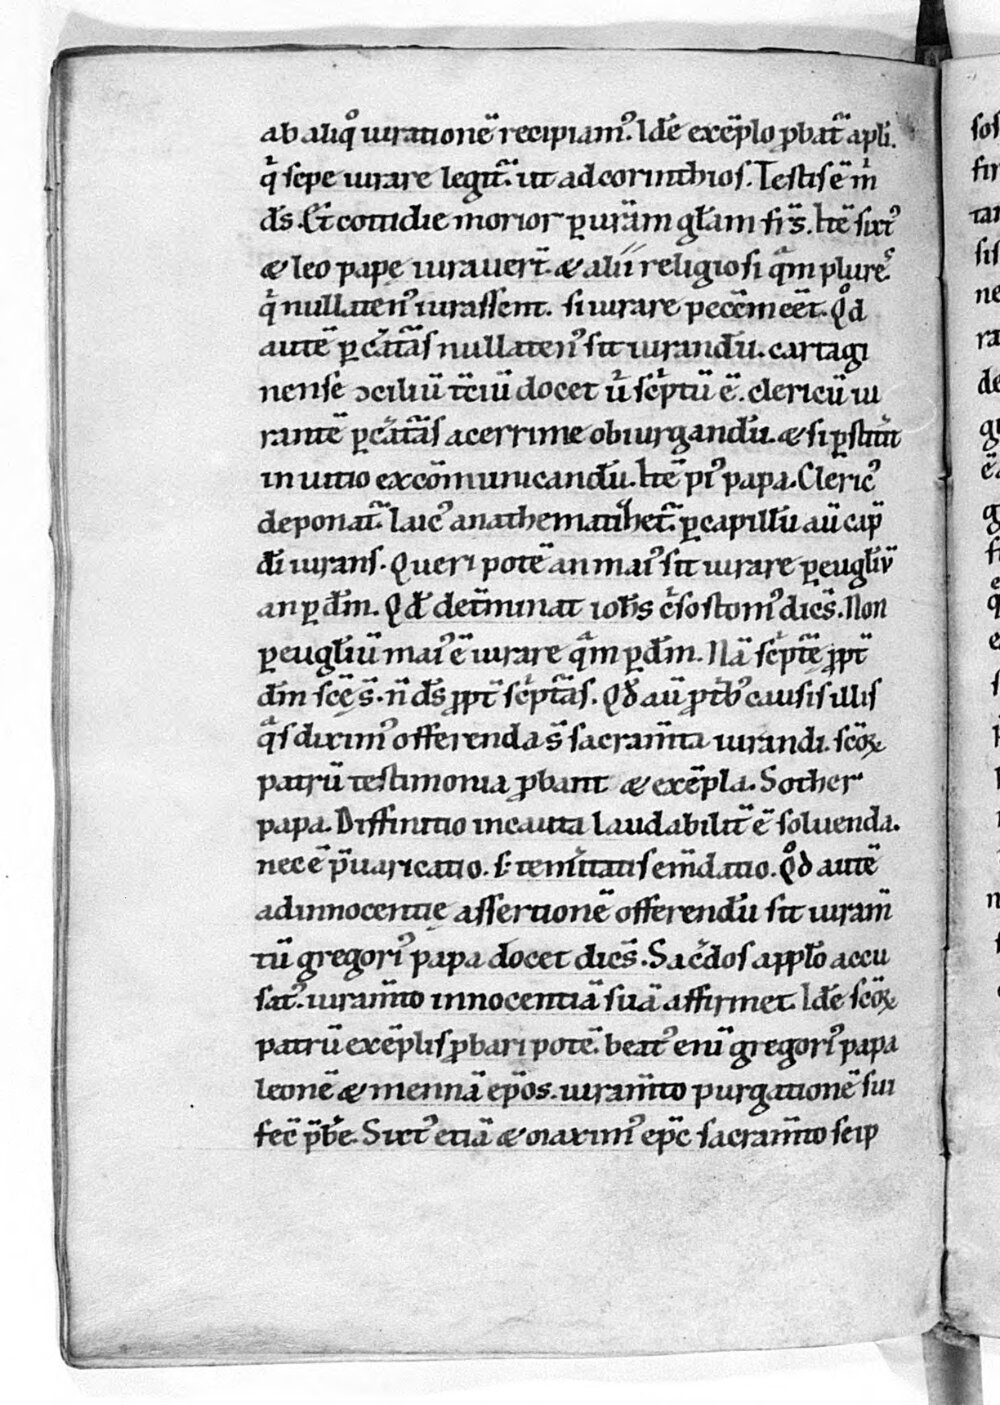 ab aliqͦ iurationē recipiam᾽. Idē exēplo ꝓbat᷑ apl̄i.
qͥ sepe iurare legit᷑. ut ad corinthios. Testis ē m̊
d̄s. Et cottidie morior ꝑ ur̄am gl̄am fr̄s. Itē sixt᾽
& leo papę iurauer̄t. & alii religiosi qͣm plures.
qͥ nullaten᾽ iurassent. si iurare pecc̄m eēt. Qͦd
autē ꝑ cͥatͣas nullaten᾽ sit iurandū. cartagi
nense ↄciliū t̄ciū docet uͥ scͥptū ē. clericū iu
rantē ꝑ cͥatͣas acerrime obiurgandū. & si ꝑstitit
in uitio excōmunicandū. Itē pi᾽ papa. Cleric᾽
deponat᷑. laic᾽ anathematiȥet᷑. ꝑ capillū aū cap̄
dī iurans. Queri potē an mai᾽ sit iurare ꝑ eugl̄iū
an ꝑ dm̄. Qd̄ det̄minat ioh̄s cͥsostom᾽ dicēs. Non
ꝑ eugl̄iū mai᾽ ē iurare qͣm ꝑ dm̄. Nā scͥptͣę ꝓpt̄
dm̄ sc̄ę s̄. n̄ d̄s ꝓpt̄ scͥptͣas. Qd̄ aū ꝓ tͥb᾽ causis illis
qͣs dixim᾽ offerenda s̄ sacram̄ta iurandi. sc̄oꝝ
patrū testimonia ꝓbant & exēpla. Sother
papa. Diffinitio incauta laudabilit̄ ē soluenda.
nec ē p̄uaricatio. s; tem̄itatis em̄datio. Qͦd autē
ad innocentię assertionē offerendū sit iuram̄
tū gregori᾽ papa docet dicēs. Sac̄dos a pplo accu
sat᾽. iuram̄to innocentiā suā affirmet. Idē sc̄oꝝ
patrū exēplis ꝓbari potē. beat᾽ enī gregori᾽ papa
leonē & mennā ep̄os. iuram̄to purgationē sui
fec̄ p̄bͤe. Sixt᾽ etiā & maxim᾽ ep̄c sacram̄to seip